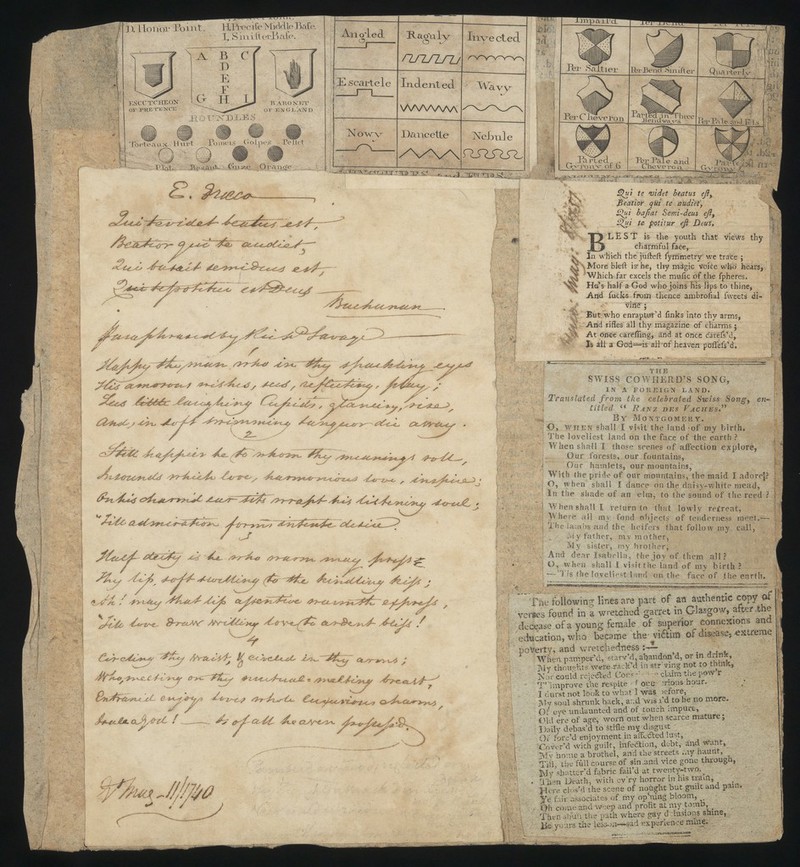 D. Honor Point. H. Precise Middle Base.
I. Sinister Base.
A B C
D
E
F
G H I
ESCUTCHEON
OF PRETENCE
BARONET
OF ENGLAND
HOUNDLES
Torteaux Hurt Pomeis Golpes Pellet
Plat Guze Orange
Angled Raguly Invected
Escartele Indented Wavy
Nowy Dancette Nebule
Per Saltier Per Bend Sinister Quarterly
Per Cheveron Parted in Three Bendways Per Pale and
Parted Gyronny of 6 Per Pale and Cheveron
Qui te videt beatus est,
Beatior qui te audiet,
Qui basiat semideus est,
Qui te potitur est Deus
Buchanan
Paraphrased by Rich.d Savage
Happy the man who in thy sparkling eyes
His amorous wishes, sees, reflecting, play;
Sees little laughing Cupids, glancing, rise,
And, in soft swimming languor die away.
2
Still happier he to whom thy meanings roll,
In sounds which love, harmonious love, inspire;
On his charm'd ear sits wrapt his listening soul;
Till admiration forms intense desire.
Half deity is he who warm may press
Thy lip, soft swelling to the kindling kiss;
Ah! may that lip assentive warmth express,
Till love draw willing love to ardent bliss!
4
Circling thy waist, & circled in thy arms;
Who, melting on thy mutual melting breast,
Entranc'd enjoys Loves whole luxurious charms,
Is all a god! — Is of all heaven possess'd.
Mag - 11/1740
Qui te videt beatus est,
Beatior qui te audiet,
Qui basiat Semi-deus est,
Qui te potitur est Deus.
BLEST is the youth that views thy
charmful face,
In which the justest symmetry we trace;
More blest is he, thy magic voice who hears,
Which far excels the music of the spheres.
He's half a God who joins his lips to thine,
And sucks from thence ambrosial sweets di-
vine;
But who enraptur'd sinks into thy arms,
And rifles all thy magazine of charms;
At once caressing, and at once caress'd,
Is all a God—is all of heaven possess'd.
THE
SWISS COWHERD'S SONG,
IN A FOREIGN LAND.
Translated from the celebrated Swiss Song, en-
titled "RANZ DES VACHES."
BY MONTGOMERY.
O, WHEN shall I visit the land of my birth,
The loveliest land on the face of the earth?
When shall I those scenes of affection explore,
Our forests, our fountains,
Our hamlets, our mountains,
With the pride of our mountains, the maid I adore?
O, when shall I dance on the daisy-white mead,
In the shade of an elm, to the sound of the reed?
When shall I return to that lowly retreat,
Where all my fond objects of tenderness meet,—
The lambs and the heifers that follow my call,
My father, my mother,
My sister, my brother,
And dear Isabella, the joy of them all?
O, when shall I visit the land of my birth?
—'Tis the loveliest land on the face of the earth.
The following lines are part of an authentic copy of
verses found in a wretched garret in Glasgow, after the
decease of a young female of superior connexions and
education, who became the victim of disease, extreme
poverty, and wretchedness:—
When pamper'd, starv'd, abandon'd, or in drink,
My thoughts were rack'd in striving not to think,
Nor could rejected Con claim the pow'r
T' improve the respite of one serious hour.
I durst not look to what I was before,
My soul shrunk back, and wish'd to be no more.
Of eye undaunted and of touch impure,
Old ere of age, worn out when scarce mature;
Daily debas'd to stifle my disgust
Of forc'd enjoyment in affected lust,
Cover'd with guilt, infection, debt, and want,
My home a brothel, and the streets my haunt,
Till, the full course of sin and vice gone through,
My shatter'd fabric fail'd at twenty-two,
Then Death, with ev'ry horror in his train,
Here clos'd the scene of nought but guilt and pain.
Ye fair associates of my op'ning bloom,
Oh come and weep and profit at my tomb,
Then shun the path where gay delusions shine,
Be yours the lesson—sad experience mine.